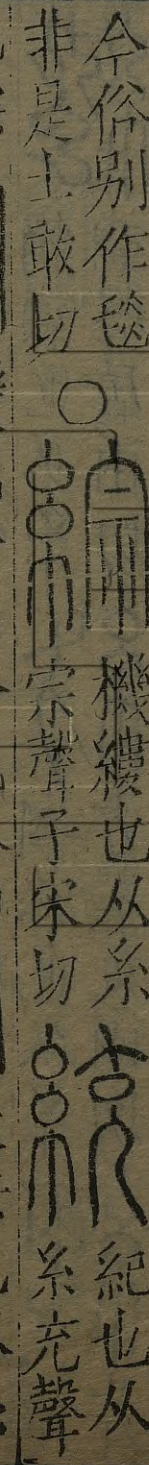 今俗别作毯
非是土敢切
○
綜
機縷也从糸
宗聲子宋切
統
紀也从
糸充聲